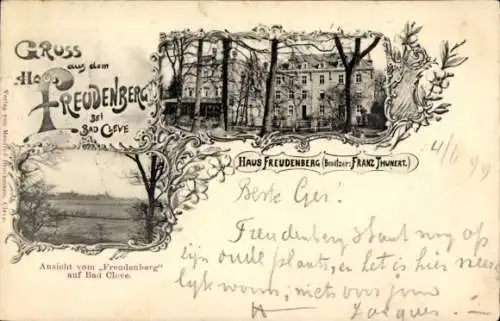 GRUSS
aus dem
HAUS
FREUDENBERG
BEI
BAD CLEVE.
HAUS FREUDENBERG (Besitzer: FRANZ THUNERT.)
4/6 99
Beste Ger!
Freudenberg staat nog op
zijn oude plaats, en het is hier
lijk warm, niets voor jou
Jacques
Ansicht vom „Freudenberg"
auf Bad Cleve.
Verlag von